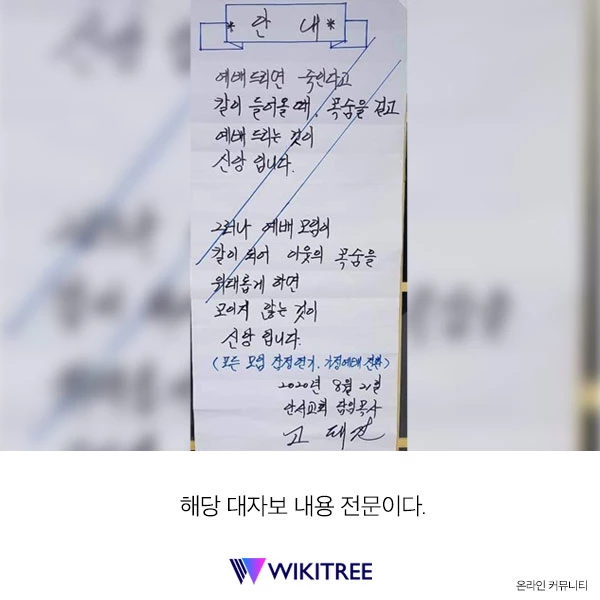 * 안 내 *
예배드리면 죽인다고
칼이 들어올 때, 목숨을 걸고
예배드리는 것이
신앙입니다.
그러나 예배 모임이
칼이 되어 이웃의 목숨을
위태롭게 하면
모이지 않는 것이
신앙입니다.
(모든 모임 잠정연기, 가정예배 전환)
2020년 8월 21일
안서교회 담임목사
고 태 진
해당 대자보 내용 전문이다.
WIKITREE
온라인 커뮤니티